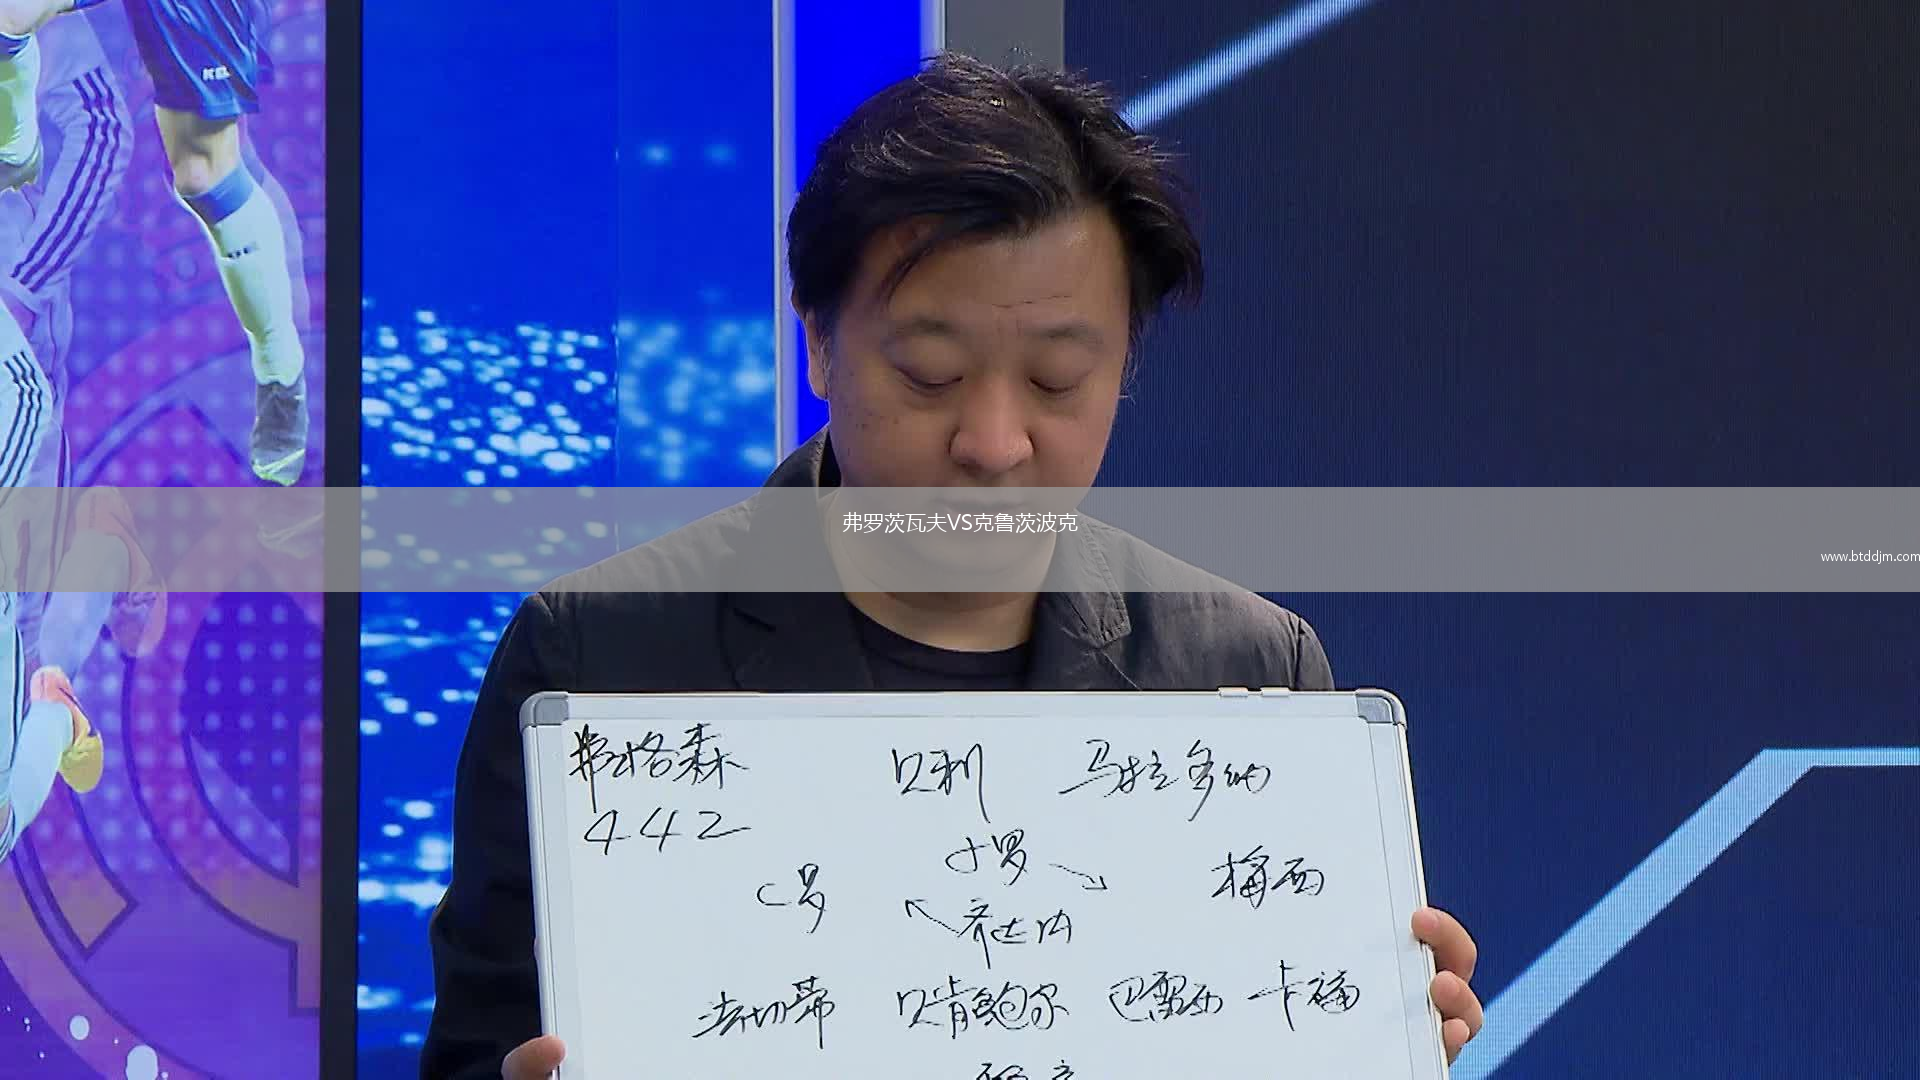 KEL
弗罗茨瓦夫VS克鲁茨波克
www.btddjm.com
弗格森 贝利 马拉多纳
442
小罗
C罗 梅西
齐达内
法切蒂 贝肯鲍尔 巴雷西 卡福